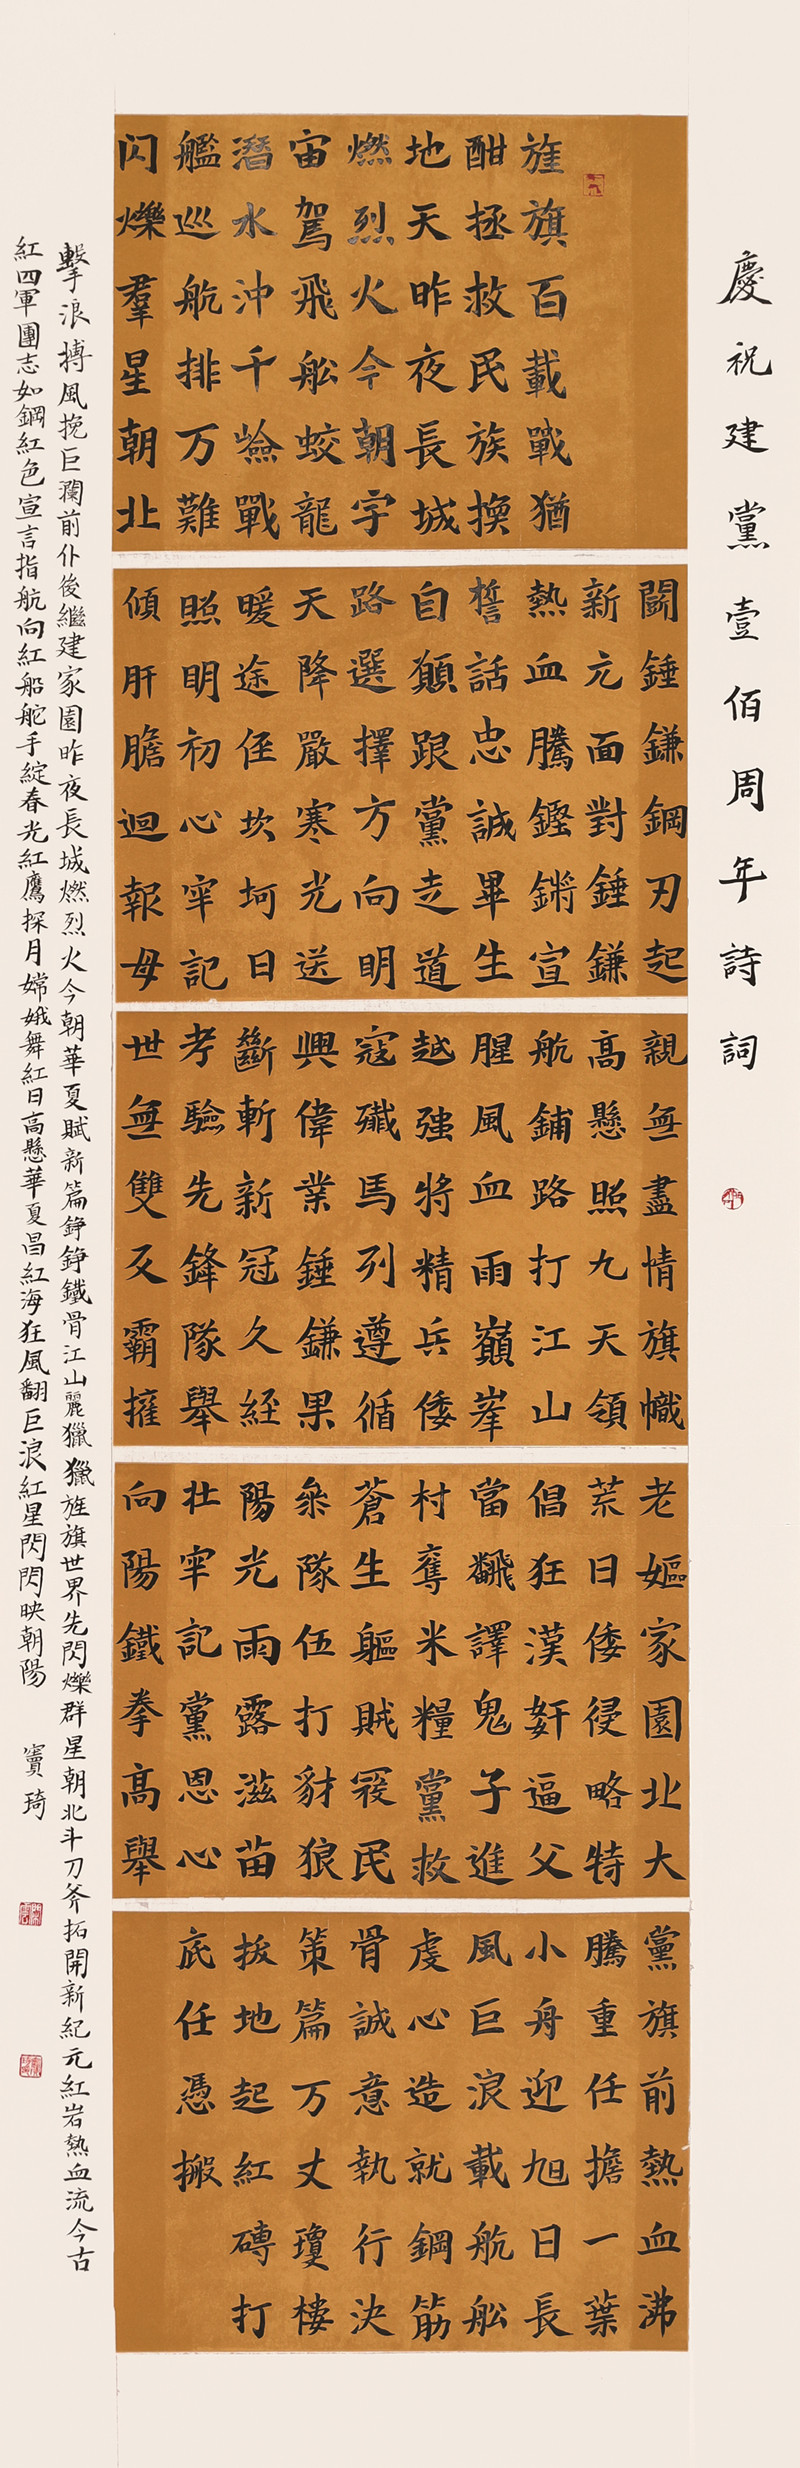 慶祝建黨壹佰周年詩詞
旌旗百載戰猶
酣拯救民族換
地天昨夜長城
燃烈火今朝宇
宙駕飛舩蛟龍
潛水沖千險戰
艦巡航排万難
闪爍羣星朝北
闢錘鎌鋼刃起
新元面對錘鎌
熱血騰鏗鏘宣
誓話忠誠畢生
自願跟黨走道
路選擇方向明
天降嚴寒光送
暖途侄坎坷日
照明初心牢記
傾肝膽迴報母
親無盡情旗幟
高懸照九天領
航鋪路打江山
腥風血雨巔峯
越強將精兵倭
寇殲馬列遵循
興偉業錘鎌果
斷斬新冠久經
考驗先鋒隊舉
世無雙反霸擁
老嫗家園北大
荒日倭侵略特
倡狂漢奸逼父
當飜譯鬼子進
村奪米糧黨救
蒼生軀賊寇民
衆隊伍打豺狼
陽光雨露滋苗
壯牢記黨恩心
向陽鐵拳高舉
黨旗前熱血沸
騰重任擔一葉
小舟迎旭日長
風巨浪載航舩
虔心造就鋼筋
骨誠意執行決
策篇万丈瓊楼
拔地起紅磚打
底任憑搬
擊浪搏風挽巨瀾前仆後繼建家園昨夜長城燃烈火今朝華夏賦新篇錚錚鐵骨江山麗獵獵旌旗世界先閃爍群星朝北斗刀斧拓開新紀元紅岩熱血流今古
紅四軍團志如鋼紅色宣言指航向紅船舵手綻春光紅鷹探月嫦娥舞紅日高懸華夏昌紅海狂風翻巨浪紅星閃閃映朝陽 竇琦